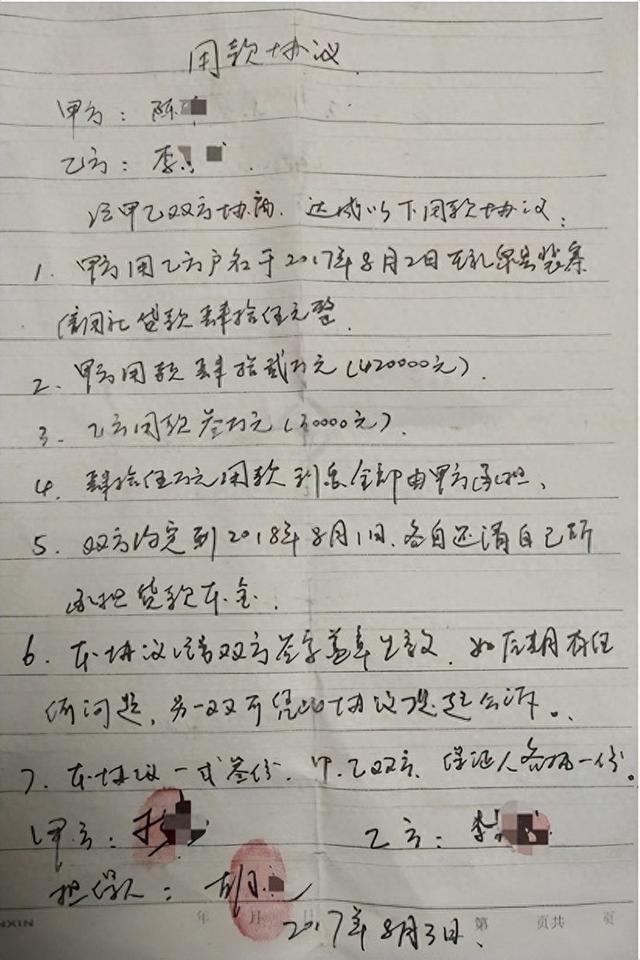 用款协议
甲方：陈
乙方：李
经甲乙双方协商，达成以下用款协议：
1、甲方用乙方户名于2017年8月2日在礼泉县裴寨
信用社贷款肆拾伍元整．
2、甲方用款肆拾贰万元（420000元）．
3、乙方用款叁万元（30000元）．
4、肆拾伍万元用款利息全部由甲方承担、
5、双方约定到2018年8月1日、各自还清自己所
承担贷款本金．
6、本协议经双方签字盖章生效．如后期有任
何问题，另一双可凭此协议提起公诉。
7、本协议一式叁份，甲、乙双方、保证人各执一份。
甲方： 乙方：李
担保人：胡
NXIN 年 月 日 第 页共 页
2017年8月3日、